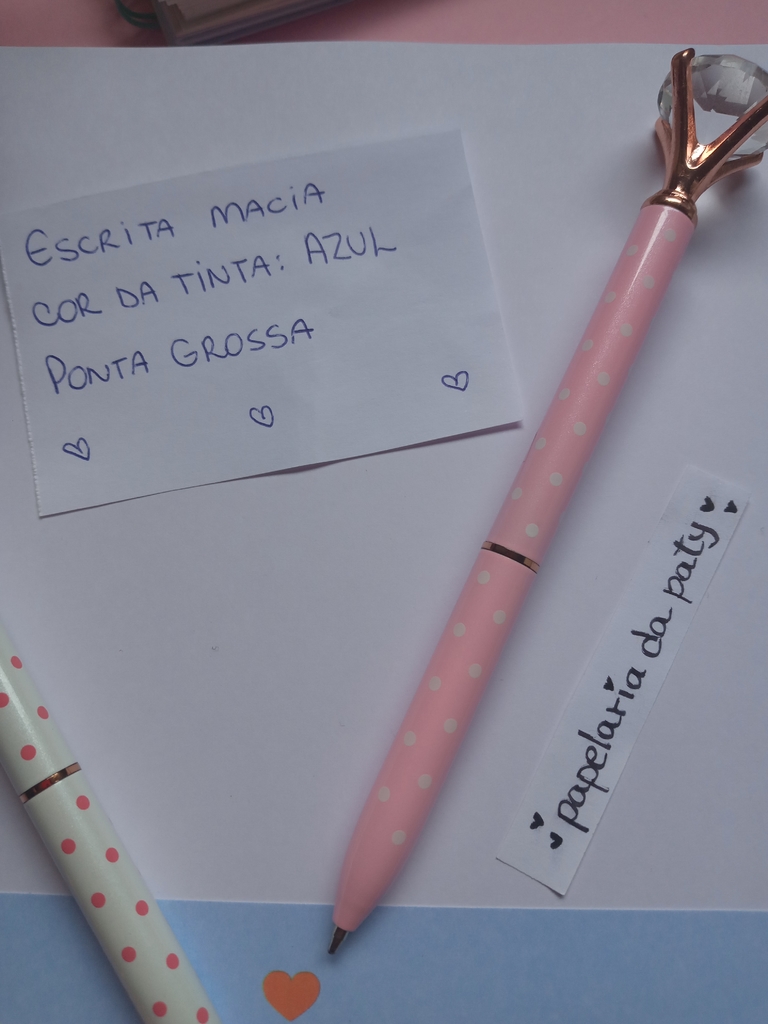 ESCRITA MACIA
COR DA TINTA: AZUL
PONTA GROSSA
papelaria da paty